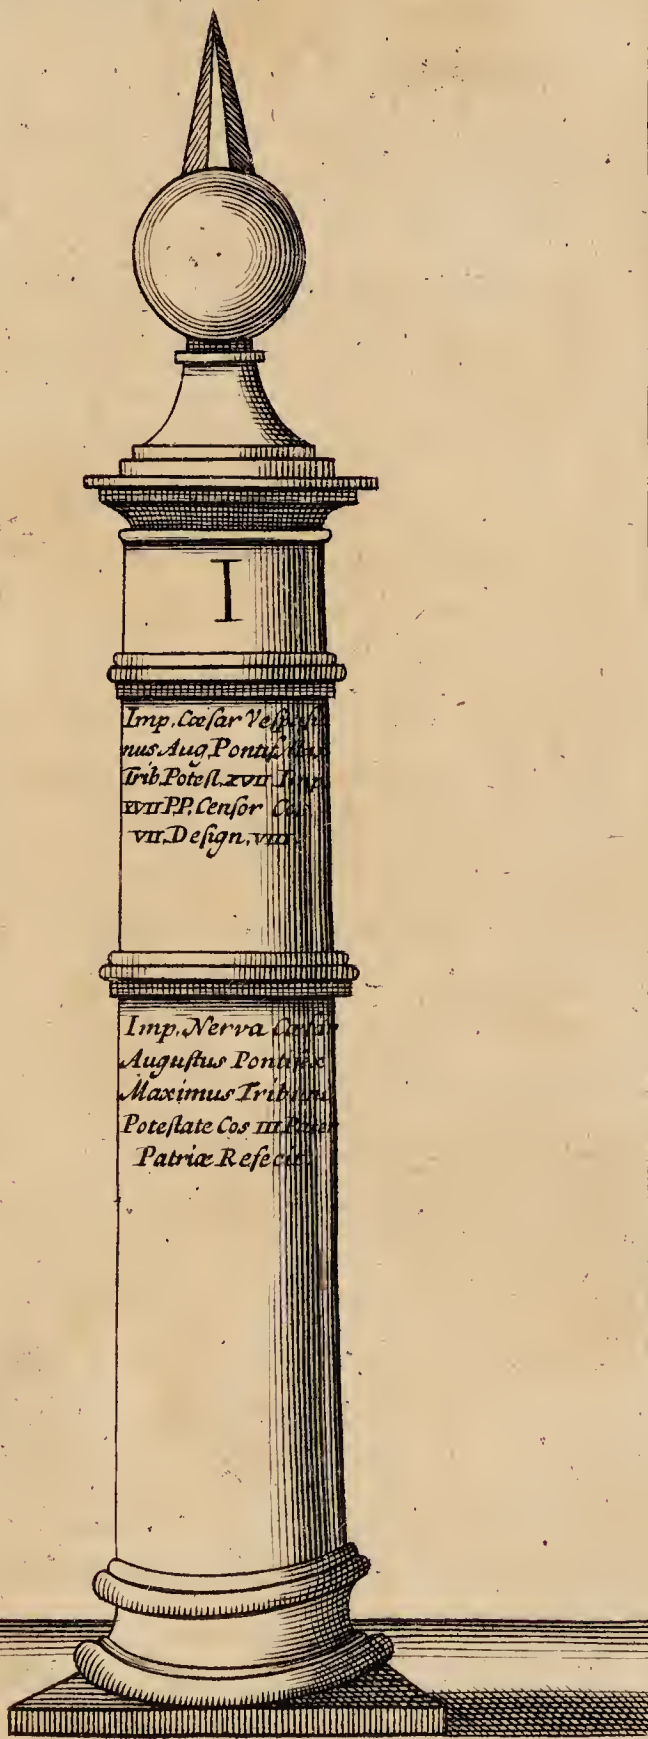 I
Imp. Cæſar Veſpaſia
nus Aug. Pontif. Max
Trib. Poteſt. XVII Imp.
XVII P.P. Cenſor Cos
VII. Deſign. VIII.
Imp. Nerva Cæſar
Auguſtus Pontifex
Maximus Tribunic
Poteſtate Cos III Pater
Patriæ Refecit.